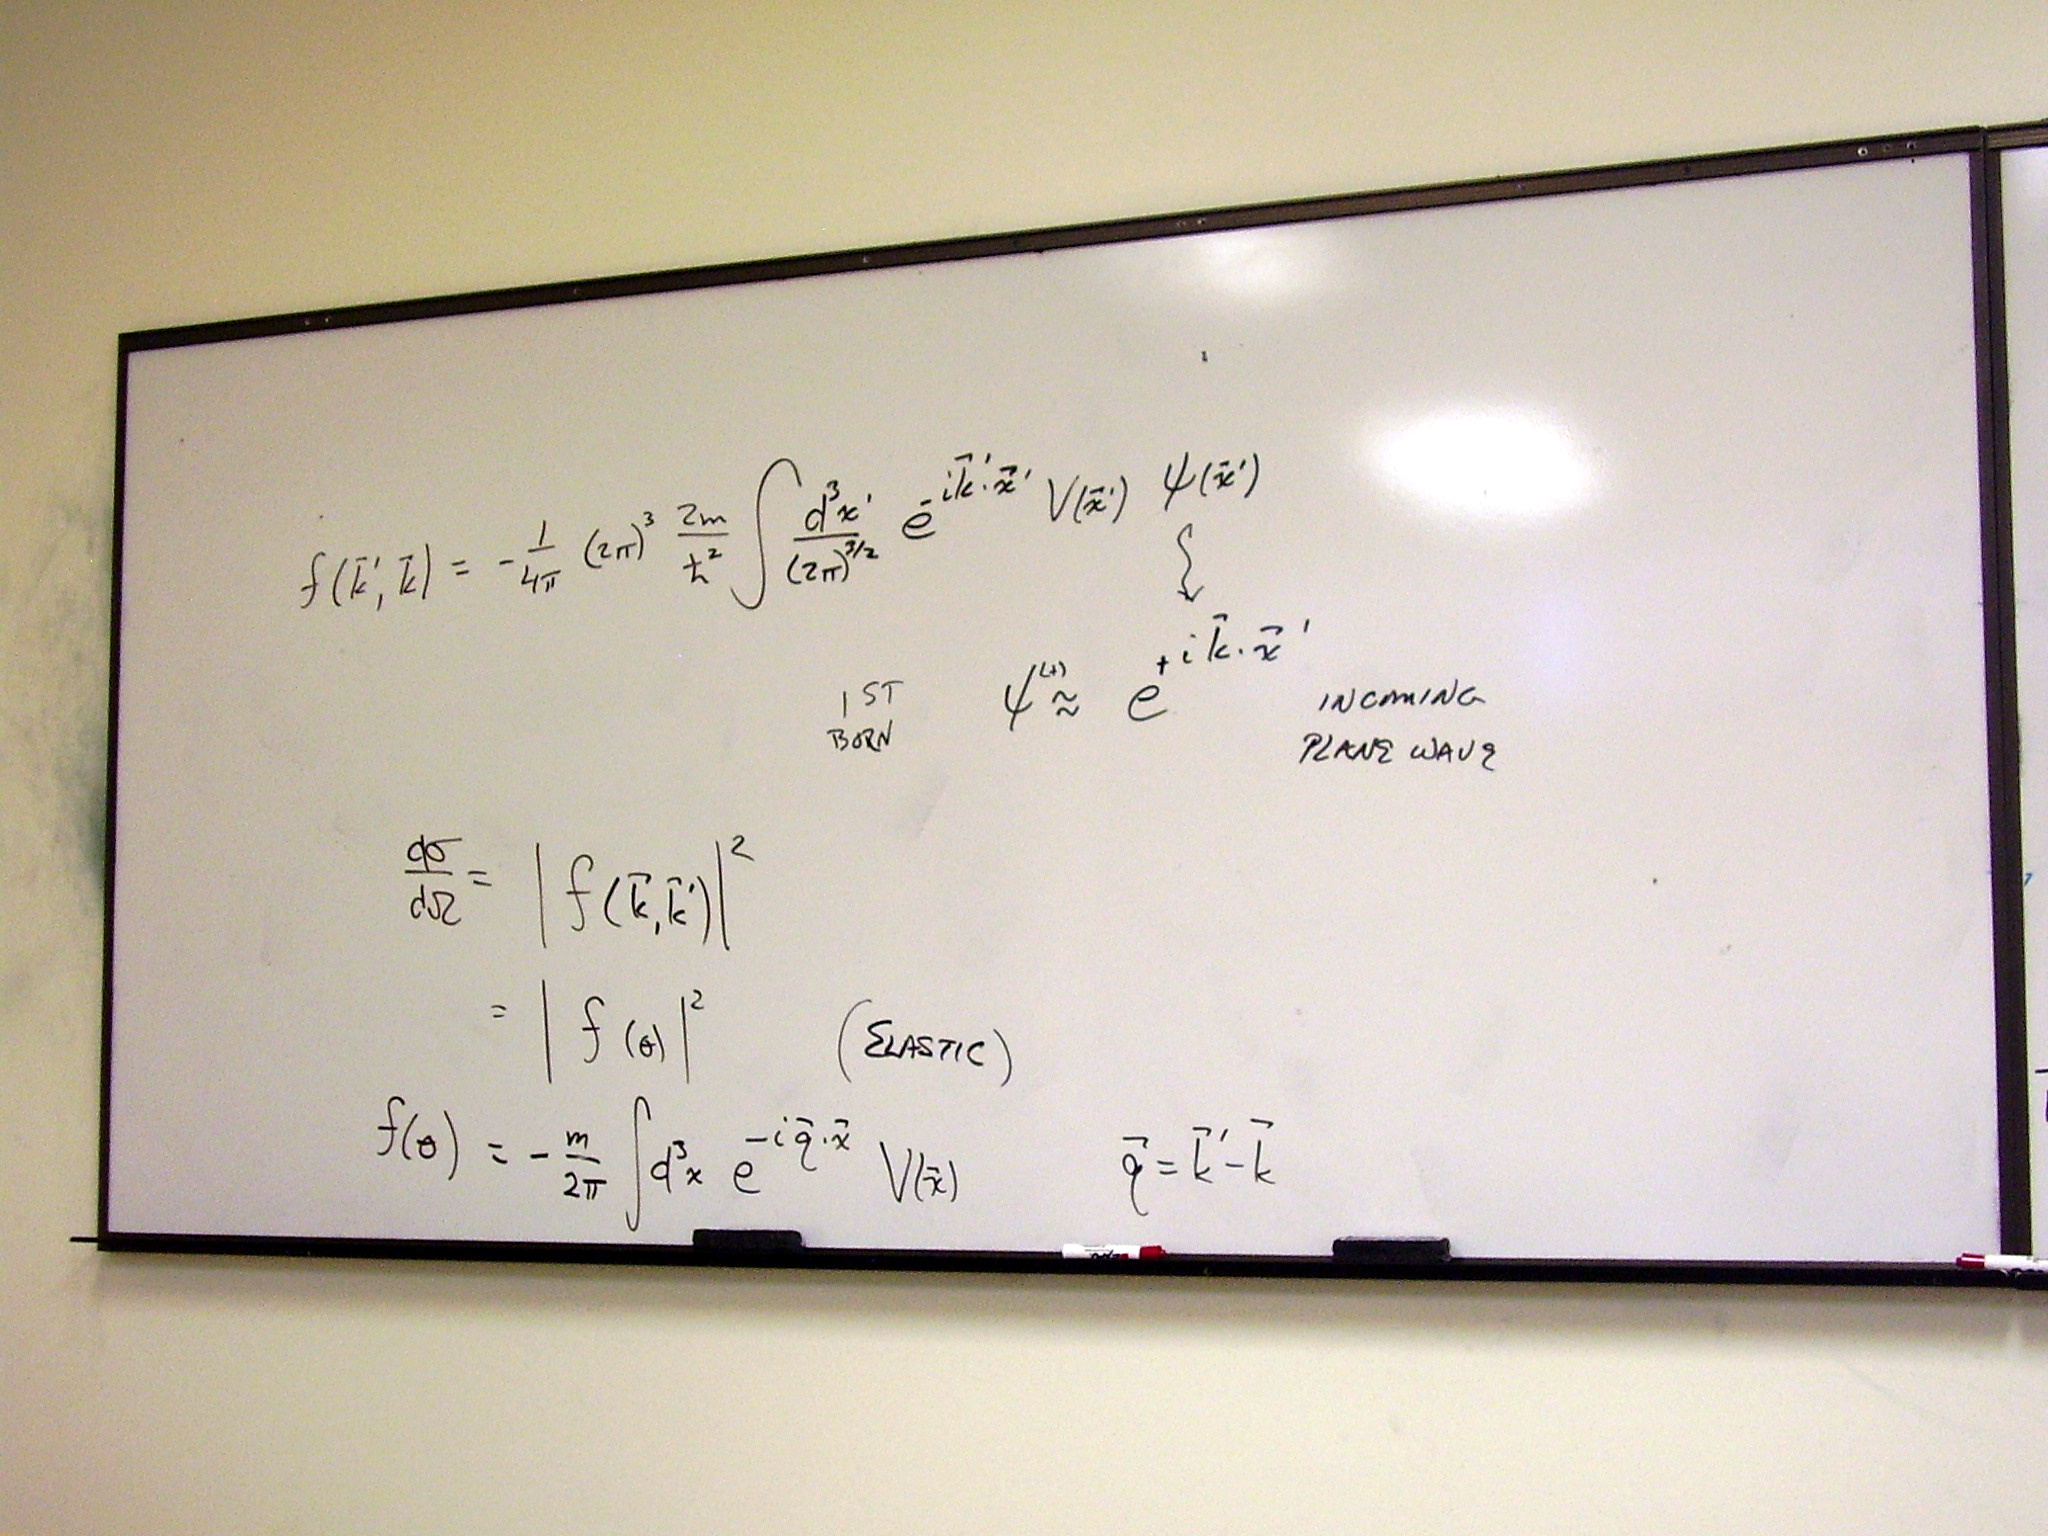 f(k⃗′, k⃗) = -1/4π (2π)³ 2m/ħ² ∫ d³x′/(2π)^3/2 e^-ik⃗′·x⃗′ V(x⃗′) ψ(x⃗′)
1ST BORN ψ⁽⁺⁾ ≈ e^+ik⃗·x⃗′ INCOMING PLANE WAVE
dσ/dΩ = |f(k⃗,k⃗′)|²
= |f(θ)|² (ELASTIC)
f(θ) = -m/2π ∫d³x e^-iq⃗·x⃗ V(x⃗) q⃗ = k⃗′-k⃗